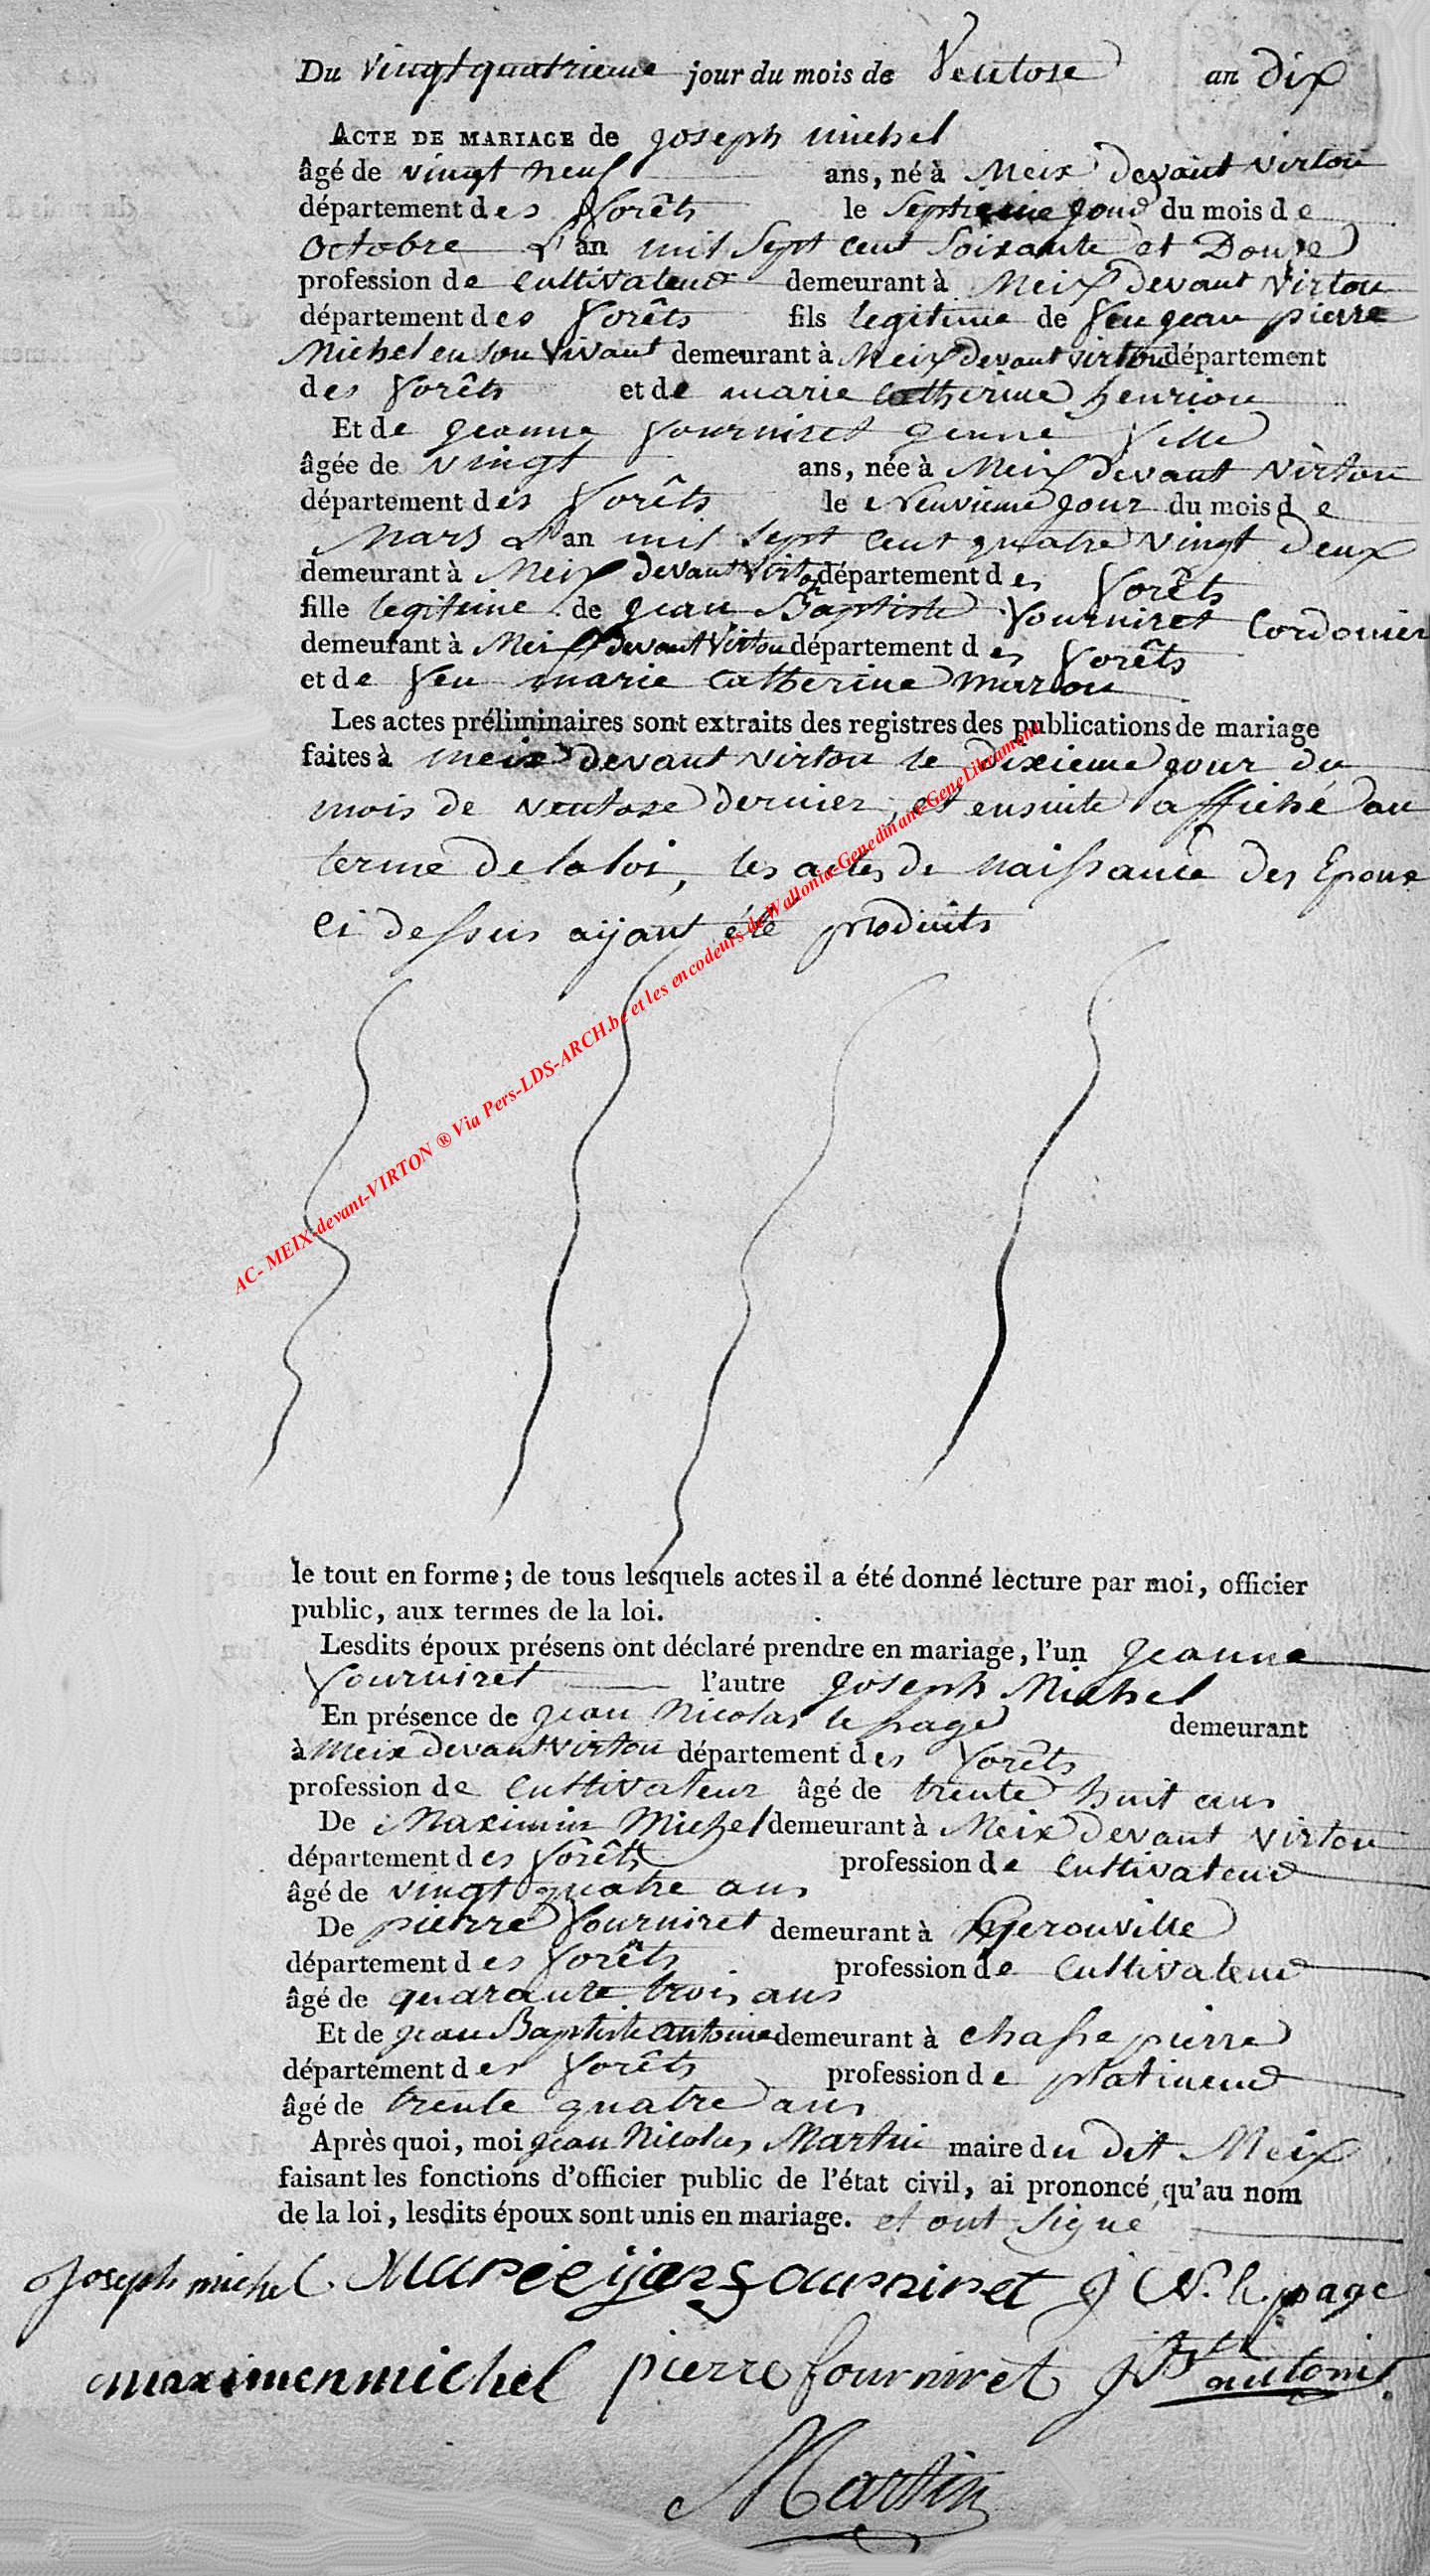 Du vingt quatrieme jour du mois de Ventose an dix
ACTE DE MARIAGE de joseph michel
âgé de vingt neuf ans, né à Meix devant virton
département des forêts le septieme jour du mois de
octobre L'an mil sept cent soixante et Douze
profession de cultivateur demeurant à Meix devant virton
département des forêts fils legitime de feu jean pierre
Michel en son vivant demeurant à Meix devant virton département
des forêts et de marie catherine henrion
Et de jeanne fourniret jeune fille
âgée de vingt ans, née à Meix devant virton
département des forêts le Neuvieme jour du mois de
Mars L'an mil sept cent quatre vingt deux
demeurant à Meix devant virton département des forêts
fille legitime de jean Baptiste fourniret Cordonier
demeurant à Meix devant virton département des forêts
et de feu marie catherine marlou
Les actes préliminaires sont extraits des registres des publications de mariage
faites à meix devant virton le dixieme jour du
mois de ventose dernier, et ensuite affiché au
terme de la loi, les actes de naissance des Epoux
ci dessus aÿant été produits
AC- MEIX-devant-VIRTON ® Via Pers-LDS-ARCH.be et les encodeurs de Wallonia-Genedinant-GeneLibramont
le tout en forme; de tous lesquels actes il a été donné lecture par moi, officier
public, aux termes de la loi.
Lesdits époux présens ont déclaré prendre en mariage, l'un jeanne
fourniret l'autre joseph Michel
En présence de jean Nicolas le page demeurant
à Meix devant virton département des forêts
profession de cultivateur âgé de trente huit ans
De Maximin Michel demeurant à Meix devant virton
département des forêts profession de cultivateur
âgé de vingt quatre ans
De pierre fourniret demeurant à gerouville
département des forêts profession de cultivateur
âgé de quarante trois ans
Et de jean Baptiste antoine demeurant à chassepierre
département des forêts profession de platineur
âgé de trente quatre ans
Après quoi, moi jean Nicolas Martin maire du dit Meix
faisant les fonctions d'officier public de l'état civil, ai prononcé qu'au nom
de la loi, lesdits époux sont unis en mariage. et ont signé
joseph michel fourniret j N. le page
maximen michel pierre fourniret j Bte antoine
Martin